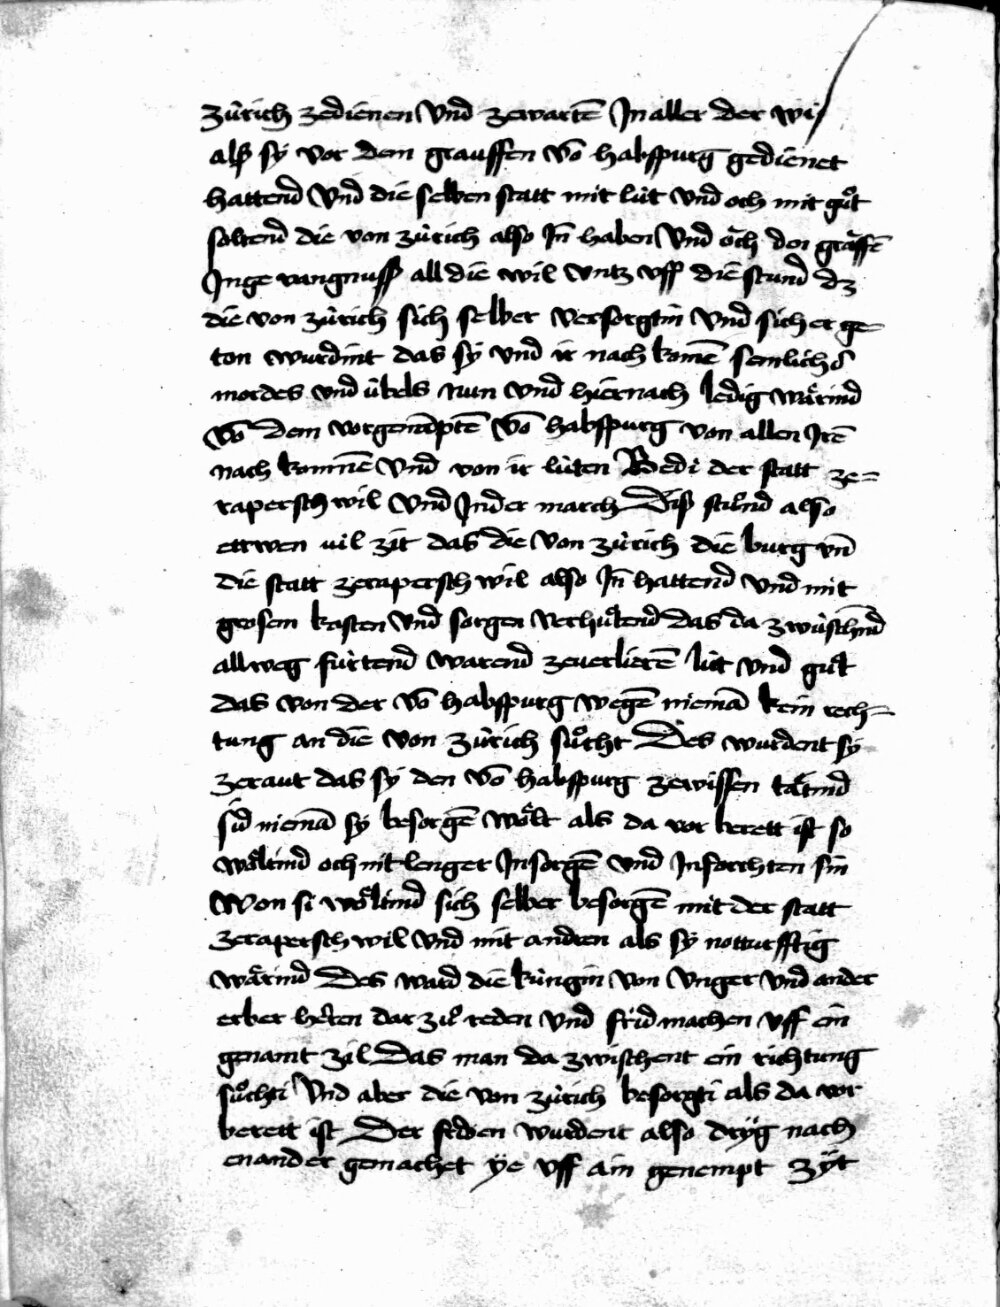 zürich zedienen Vnd zewartē In aller der wiſ
alſ sÿ vor dem grauffen vō habſpurg gedienet
hattend Vnd die selben statt mit lüt Vnd och mit gůt
soltend die von zürich also In haben Vnd och den graffē
In ge vangnuſſ all die wil vntz vff die stund dz
die von zürich sich selber verſorgtin Vnd sicher ge-
ton wurdint das sÿ vnd ir nach komē semlichs
mordes vnd übels nun vnd hiernach ledig wärind
Vō dem vorgenēpten vō habſpurg von allen Irē
nach komnē Vnd von ir lüten Bedi der statt ze=
raperschwil Vnd In der march Diſ stůnd also
ettwen vil zit das die von zürich die burg vn̄
die statt zeraperschwil also In hattend vnd mit
grosem kosten Vnd sorgen verhůtend das da zwüschend
allweg fürtend warend zeuerlierē lüt vnd gůt
das von der vō habſpurg wegē niemā kein rech-
tung an die von zürich sůcht Des wurdent sÿ
zeraut das sÿ den vō habſpurg zewissen tätind
sid niemā sÿ besorgē wölt als da vor berett ist so
wöltind och nit lenger In sorgē vnd In forchten sin
Won si wöltind sich selber besorgē mit der statt
zeraperschwil Vnd mit andren als sÿ notturfftig
wärind Des ward die küngin von Vnger vnd ander
erber herēn dar zů reden vnd frid machen vff ein
genamt zil Das man da zwischent ein richtung
sůchti Vnd aber die von zürich besorgti als da vor
berett ist Der friden wurdent also drÿg nach
enander gemachet ÿe vff ain genempt zÿt